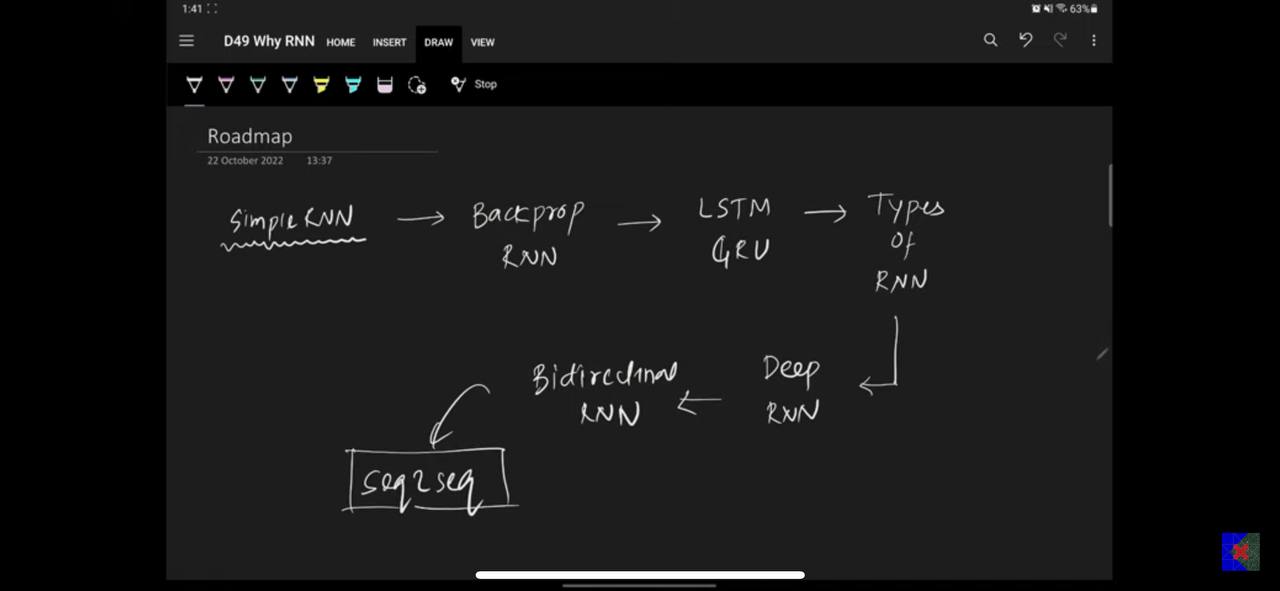 1:41
63%
D49 Why RNN HOME INSERT DRAW VIEW
Stop
Roadmap
22 October 2022 13:37
Simple RNN → Backprop RNN → LSTM GRU → Types Of RNN
Deep RNN
Bidirectional RNN
Seq2seq